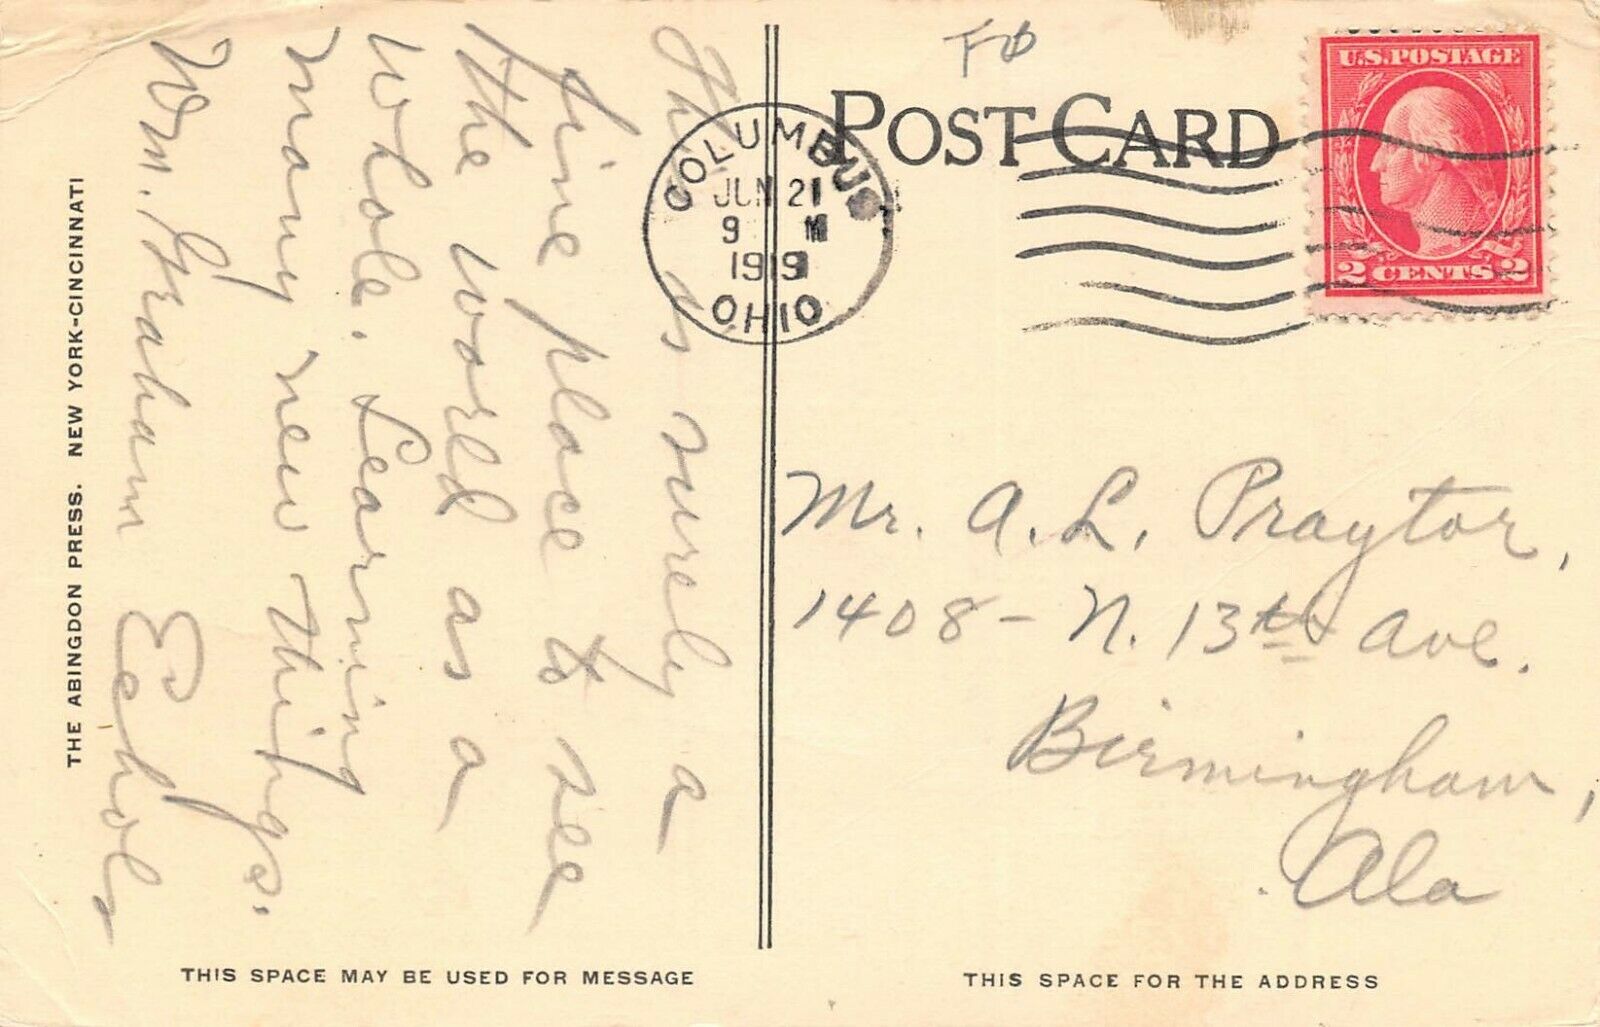 This is surely a
fine place to see
the world as a
whole. Learning
many new things.
Wm. Graham Echols
THE ABINGDON PRESS. NEW YORK-CINCINNATI
THIS SPACE MAY BE USED FOR MESSAGE
COLUMBUS
JUN 21
9 M
1919
OHIO
POST CARD
U.S. POSTAGE
2 CENTS 2
Mr. A. L. Praytor,
1408 - N. 13th Ave.
Birmingham,
Ala
THIS SPACE FOR THE ADDRESS